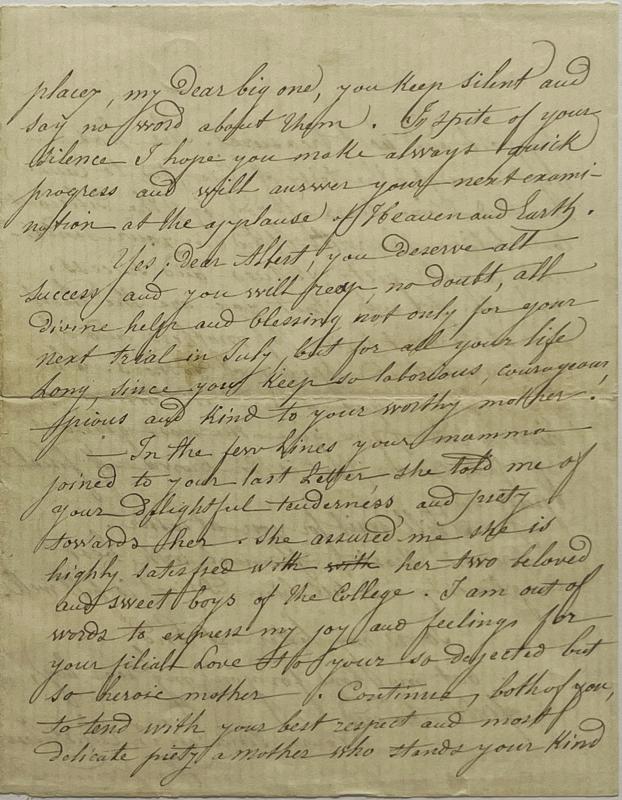 places, my Dear big one, you keep silent and
say no word about them. In spite of your
silence I hope you make always quick
progress and will answer your next exami-
nation at the applause of Heaven and Earth.
Yes, Dear Albert, you deserve all
success and you will reap, no doubt, all
divine help and blessing not only for your
next trial in July, but for all your life
long, since you keep so laborious, courageous,
pious and kind to your worthy mother!
— In the few lines your mamma
joined to your last letter, she told me of
your delightful tenderness and piety
towards her. She assured me she is
highly satisfied with with her two beloved
and sweet boys of the College. I am out of
words to express my joy and feelings for
your filial Love to your so dejected but
so heroic mother. Continue, both of you,
to tend with your best respect and most
delicate piety a mother who stands your kind